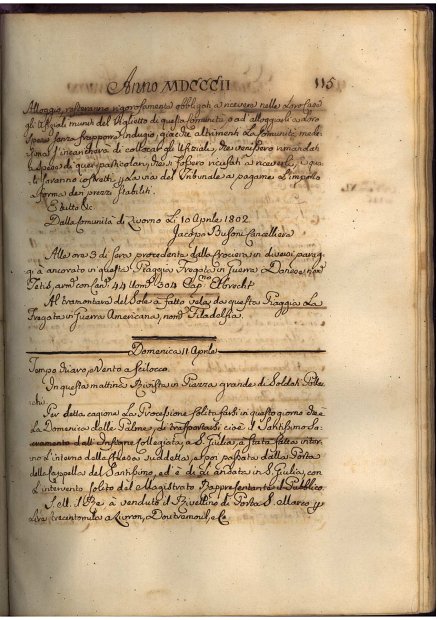 Anno MDCCCII 115
Alloggio, resteranno rigorosamente obbligati a ricevere nelle Loro Case
gli Ufiziali muniti del Viglietto di questa Comunità, o ad alloggiarli a loro
spese senza frapporre Indugio, giacchè altrimenti La Comunità mede-
sima s'incaricherà di collocar gli Ufiziali, che venissero rimandati
a spese di quei particolari, che si fossero ricusati a riceverli, e qua-
li saranno costretti p La via del Tribunale a pagarne L'importo
a forma dei prezzi stabiliti.
E tutto &c.
Dalla Comunità di Livorno Li 10 Aprile 1802.
Jacopo Busoni Cancelliere
Alle ore 3 di sera procedente dalla Crociera in diversi parag-
gi à ancorato in questa Piaggia Fregata in Guerra Danese nom
Tetis, arm con Can: 44 Uom: 304 Cap: Elbrecht
Al tramontare del Sole à fatto vela da questa Piaggia La
Fregata in Guerra Americana, nom Filadelfia.
Domenica 11 Aprile
Tempo chiaro, e Vento a scilocco.
In questa mattina Rivista in Piazza grande di Soldati
Per detta cagione La Processione solita farsi in questo giorno che è
La Domenica delle Palme, di trasportarsi cioè il Santissimo Sa-
cramento dall' Insigne Collegiata, a S. Giulia, è stata fatta intor-
no L'interno della Chiesa suddetta, e poi passata dalla Porta
della Cappella del Santissimo, ed è di là andata in S. Giulia, con
L'intervento solito del Magistrato Rappresentante il Pubblico.
S. M. il Re à venduto il Rivellino di Porta S. Marco p
Lire trecentomila a